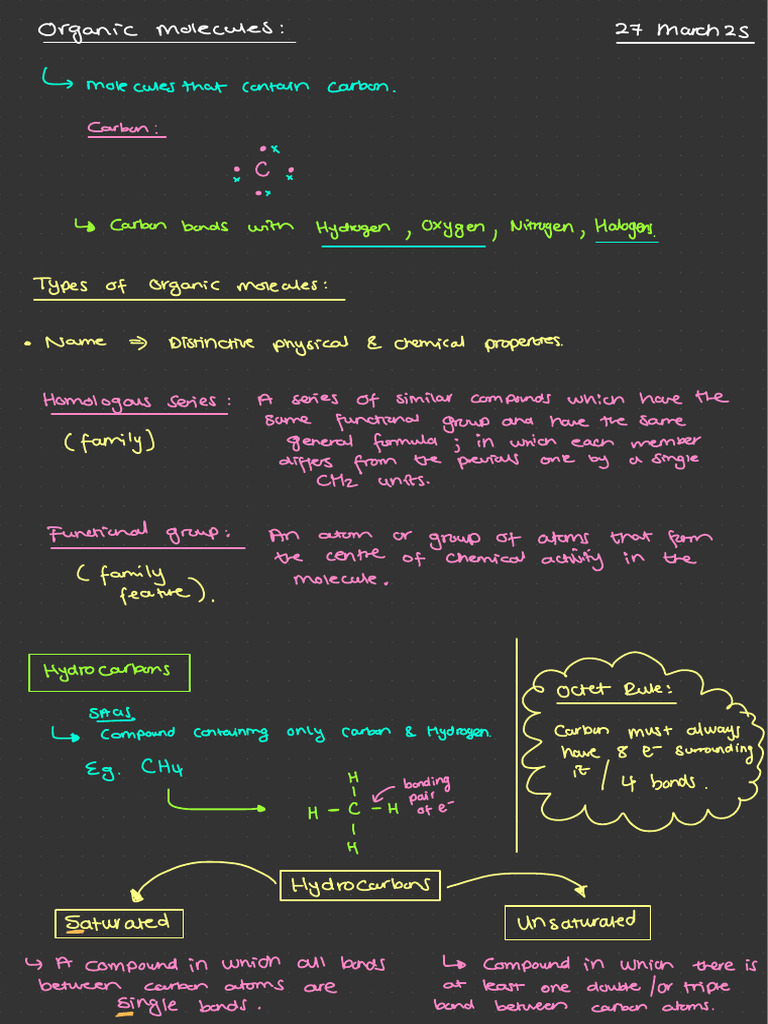 Organic Molecules: 27 March 25
↳ molecules that contain carbon.
Carbon:
C
↳ Carbon bonds with Hydrogen, Oxygen, Nitrogen, Halogens.
Types of organic molecules:
• Name ⇒ Distinctive physical & chemical properties.
Homologous series: A series of similar compounds which have the
(family) same functional group and have the same
general formula; in which each member
differs from the previous one by a single
CH2 units.
Functional group: An atom or group of atoms that form
(family the centre of chemical activity in the
feature). molecule.
Hydrocarbons
SAGs
↳ Compound containing only carbon & Hydrogen.
Eg. CH4
H
H - C - H
H
bonding
pair
of e-
Octet Rule:
Carbon must always
have 8 e- surrounding
it / 4 bonds.
Hydrocarbons
Saturated
↳ A compound in which all bonds
between carbon atoms are
single bonds.
Unsaturated
↳ Compound in which there is
at least one double/or triple
bond between carbon atoms.